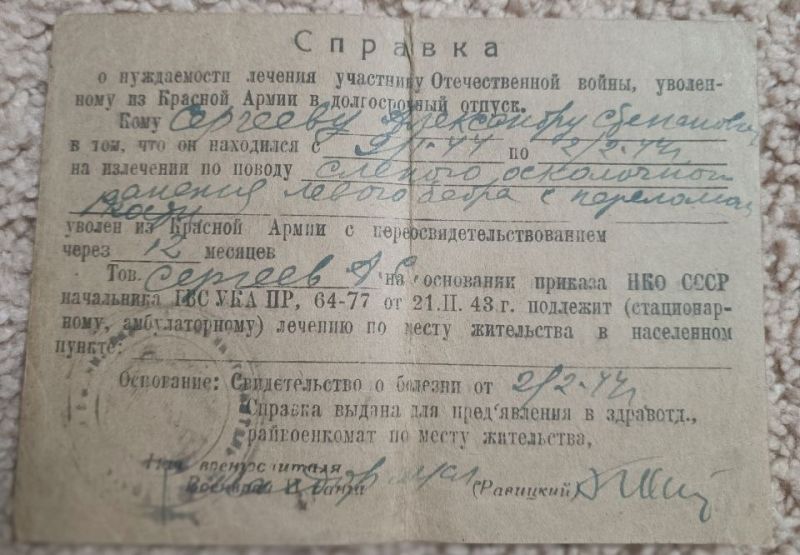 Справка
о нуждаемости лечения участнику Отечественной войны, уволен-
ному из Красной Армии в долгосрочный отпуск.
Кому Сергееву Александру Степанович
в том, что он находился с 2/1-44 по 2/2-44г
на излечении по поводу слепого осколочного
ранения левого бедра с переломом
кости
уволен из Красной Армии с переосвидетельствованием
через 12 месяцев
Тов. Сергеев А С на основании приказа НКО СССР
начальника ГВС УКА ПР, 64-77 от 21.II. 43 г. подлежит (стационар-
ному, амбулаторному) лечению по месту жительства в населенном
пункте:
Основание: Свидетельство о болезни от 2/2-44г
Справка выдана для предъявления в здравотд.,
райвоенкомат по месту жительства,
Нач. военгоспиталя
Военврач ранга (Равицкий)